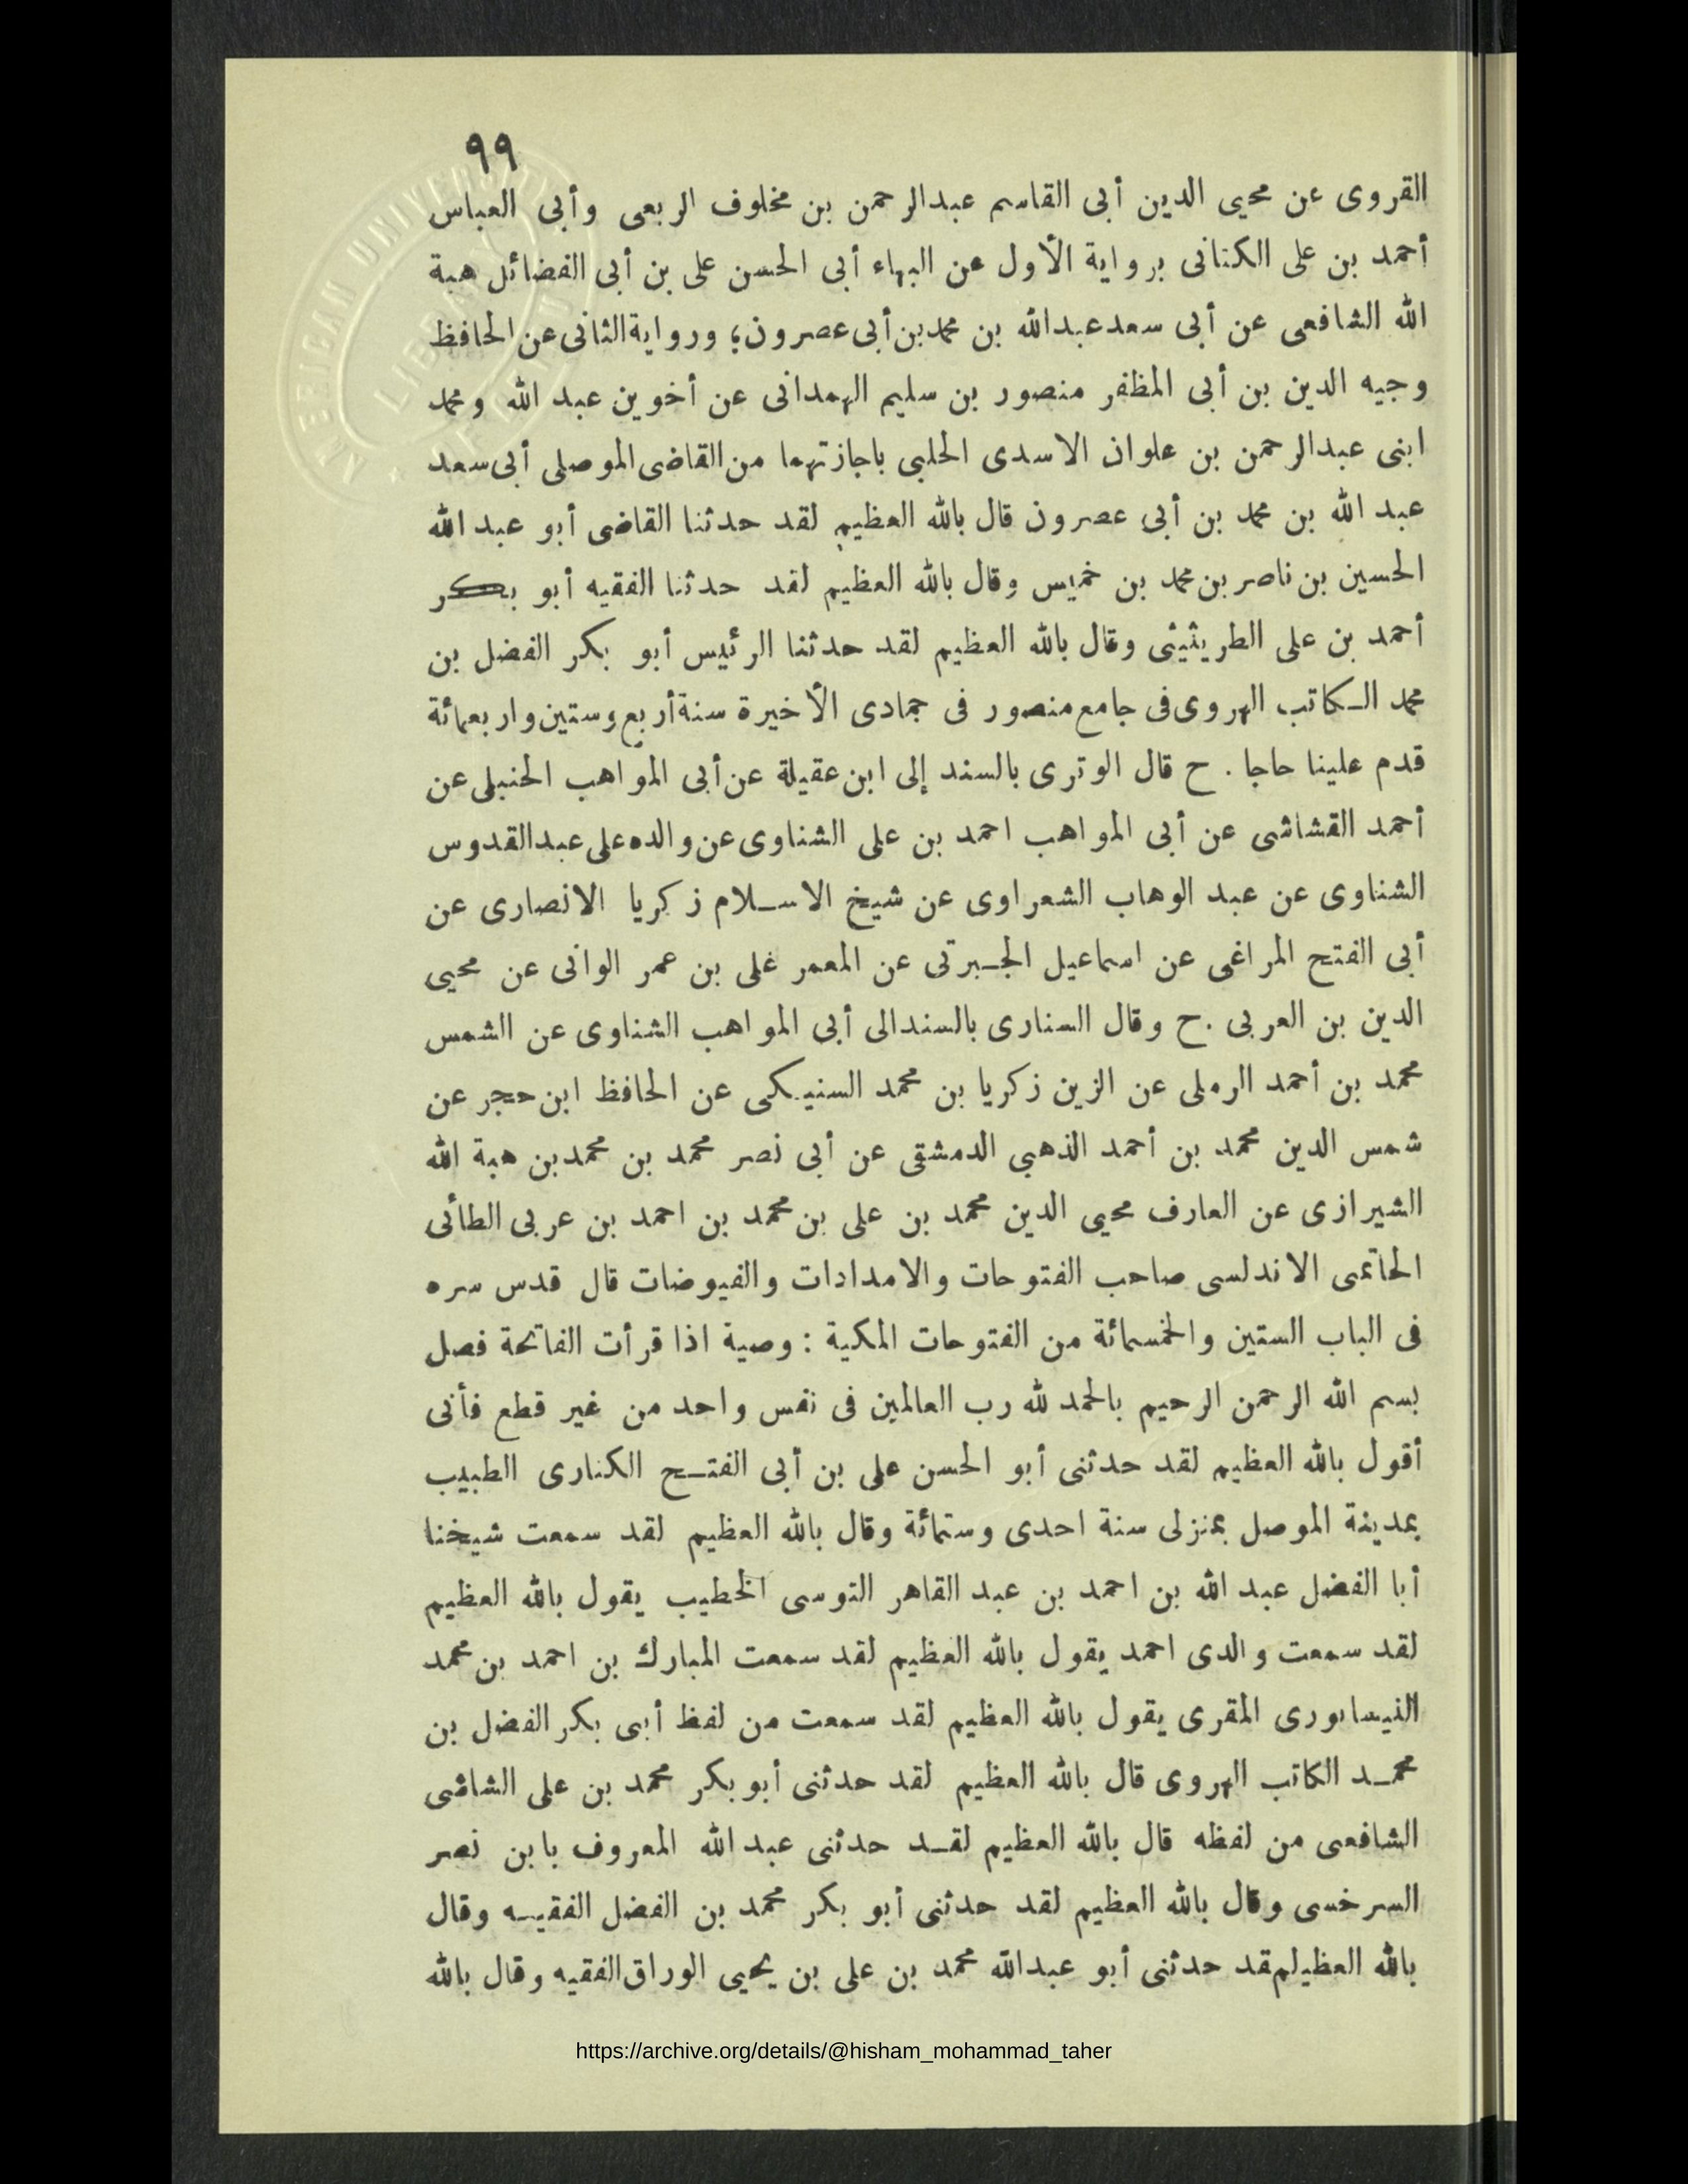 ٩٩
القروى عن محيى الدين أبى القاسم عبدالرحمن بن مخلوف الربعى وأبى العباس
أحمد بن على الكنانى برواية الأول عن البهاء أبى الحسن على بن أبى الفضائل هبة
الله الشافعى عن أبى سعد عبدالله بن محمد بن أبى عصرون؛ ورواية الثانى عن الحافظ
وجيه الدين بن أبى المظفر منصور بن سليم الهمدانى عن أخوين عبد الله ومحمد
ابنى عبدالرحمن بن علوان الاسدى الحلبى باجازتهما من القاضى الموصلى أبى سعد
عبد الله بن محمد بن أبى عصرون قال بالله العظيم لقد حدثنا القاضى أبو عبد الله
الحسين بن ناصر بن محمد بن خميس وقال بالله العظيم لقد حدثنا الفقيه أبو بكر
أحمد بن على الطريثيثى وقال بالله العظيم لقد حدثنا الرئيس أبو بكر الفضل بن
محمد الكاتب الهروى فى جامع منصور فى جمادى الأخيرة سنة أربع وستين واربعمائة
قدم علينا حاجا . ح قال الوترى بالسند إلى ابن عقيلة عن أبى المواهب الحنبلى عن
أحمد القشاشى عن أبى المواهب احمد بن على الشناوى عن والده على عبدالقدوس
الشناوى عن عبد الوهاب الشعراوى عن شيخ الاسلام زكريا الانصارى عن
أبى الفتح المراغى عن اسماعيل الجبرتى عن المعمر غلى بن عمر الوانى عن محيى
الدين بن العربى . ح وقال السنارى بالسندالى أبى المواهب الشناوى عن الشمس
محمد بن أحمد الرملى عن الزين زكريا بن محمد السنيكى عن الحافظ ابن حجر عن
شمس الدين محمد بن أحمد الذهبي الدمشقى عن أبى نصر محمد بن محمد بن هبة الله
الشيرازى عن العارف محيى الدين محمد بن على بن محمد بن احمد بن عربى الطأئى
الحاتمى الاندلسى صاحب الفتوحات والامدادات والفيوضات قال قدس سره
فى الباب الستين والخمسمائة من الفتوحات المكية : وصية اذا قرأت الفاتحة فصل
بسم الله الرحمن الرحيم بالحمد لله رب العالمين فى نفس واحد من غير قطع فأنى
أقول بالله العظيم لقد حدثنى أبو الحسن على بن أبى الفتح الكنارى الطبيب
بمدينة الموصل بمنزلى سنة احدى وستمائة وقال بالله العظيم لقد سمعت شيخنا
أبا الفضل عبد الله بن احمد بن عبد القاهر التوسى الخطيب يقول بالله العظيم
لقد سمعت والدى احمد يقول بالله العظيم لقد سمعت المبارك بن احمد بن محمد
النيسابورى المقرى يقول بالله العظيم لقد سمعت من لفظ أبى بكر الفضل بن
محمد الكاتب الهروى قال بالله العظيم لقد حدثنى أبو بكر محمد بن على الشاشى
الشافعى من لفظه قال بالله العظيم لقد حدثنى عبد الله المعروف بابن نصر
السرخسى وقال بالله العظيم لقد حدثنى أبو بكر محمد بن الفضل الفقيه وقال
بالله العظيلم مقد حدثنى أبو عبدالله محمد بن على بن يحيى الوراق الفقيه وقال بالله
https://archive.org/details/@hisham_mohammad_taher